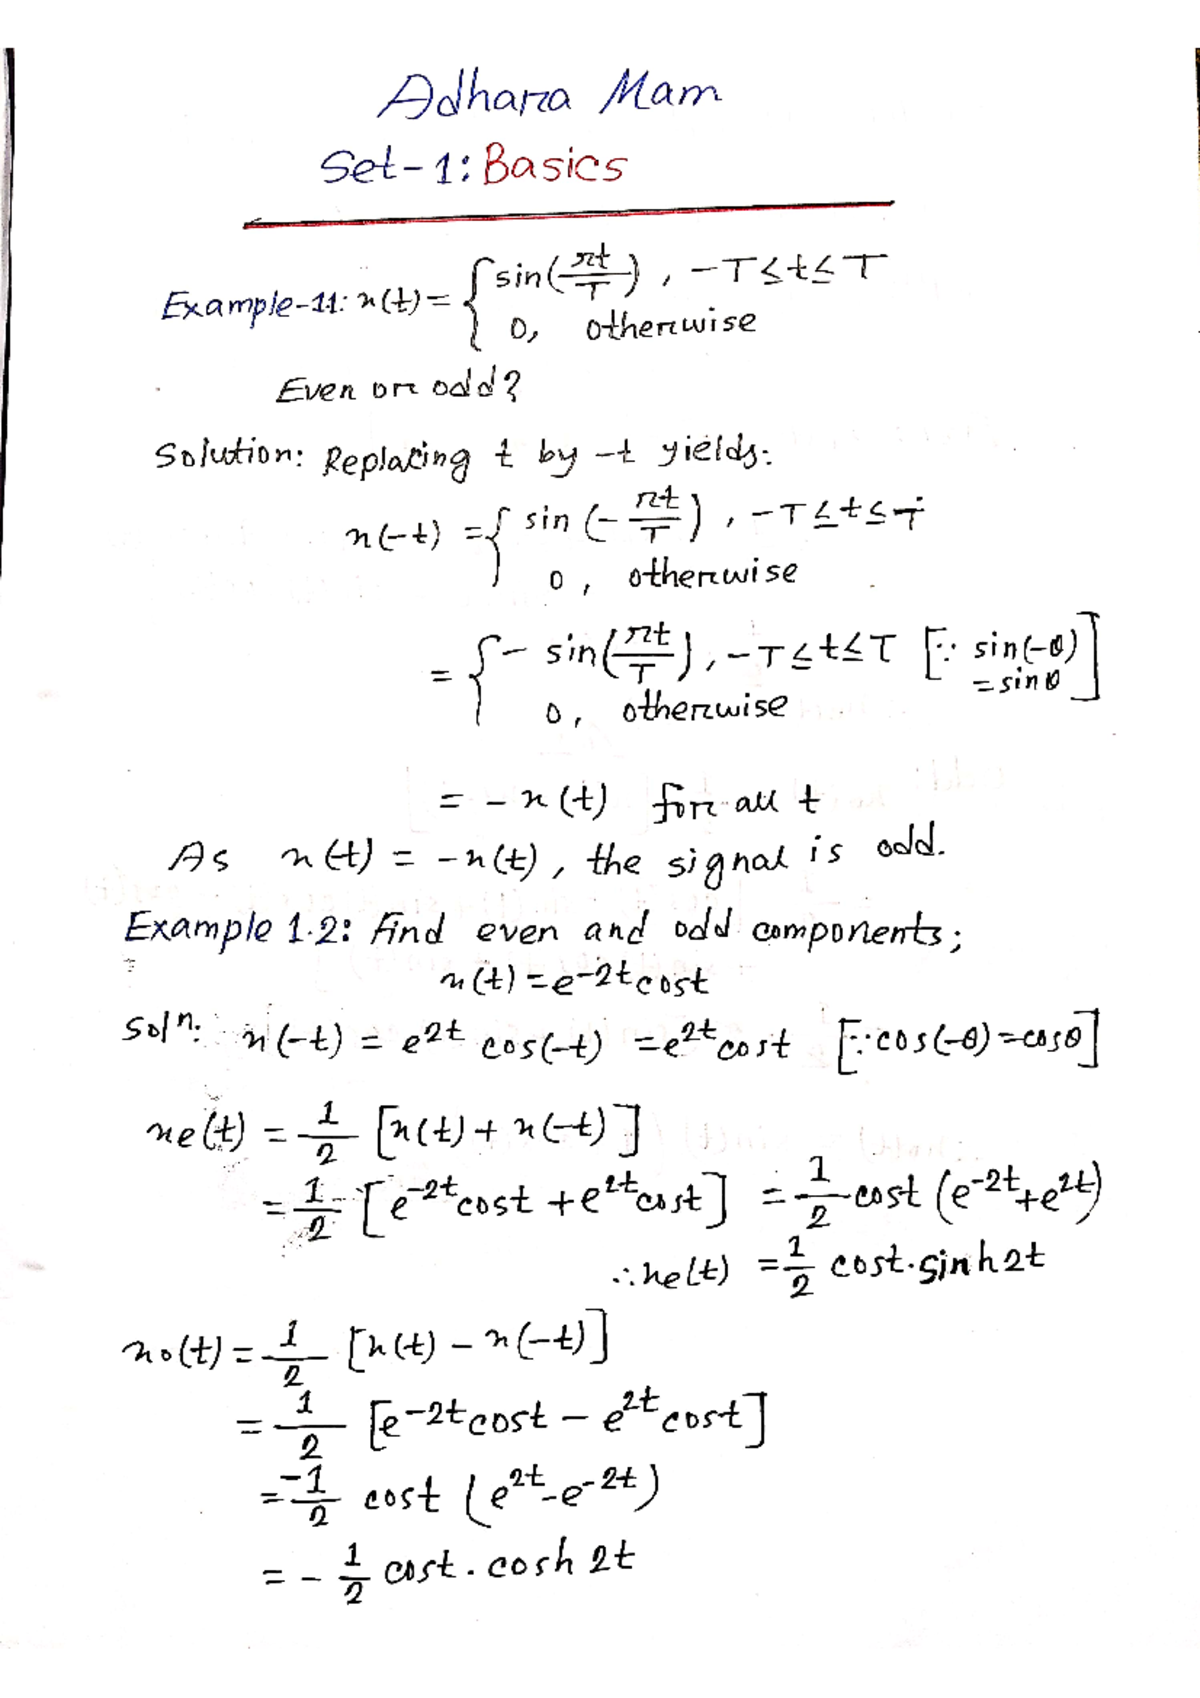 Adhara Mam
Set-1: Basics
Example-11: x(t) = { sin(πt/T), -T≤t≤T
0, otherwise
Even or odd?
Solution: Replacing t by -t yields:
x(-t) = { sin(-πt/T), -T≤t≤T
0, otherwise
= { - sin(πt/T), -T≤t≤T [∵ sin(-θ) = sinθ]
0, otherwise
= -x(t) for all t
As x(t) = -x(t), the signal is odd.
Example 1.2: Find even and odd components;
x(t) = e^-2t cost
Solⁿ: x(-t) = e^2t cos(-t) = e^2t cost [∵ cos(-θ) = cosθ]
xe(t) = 1/2 [x(t) + x(-t)]
= 1/2 [e^-2t cost + e^2t cost] = 1/2 cost (e^-2t + e^2t)
∴ xe(t) = 1/2 cost. sinh2t
xo(t) = 1/2 [x(t) - x(-t)]
= 1/2 [e^-2t cost - e^2t cost]
= -1/2 cost (e^2t - e^-2t)
= - 1/2 cost. cosh 2t